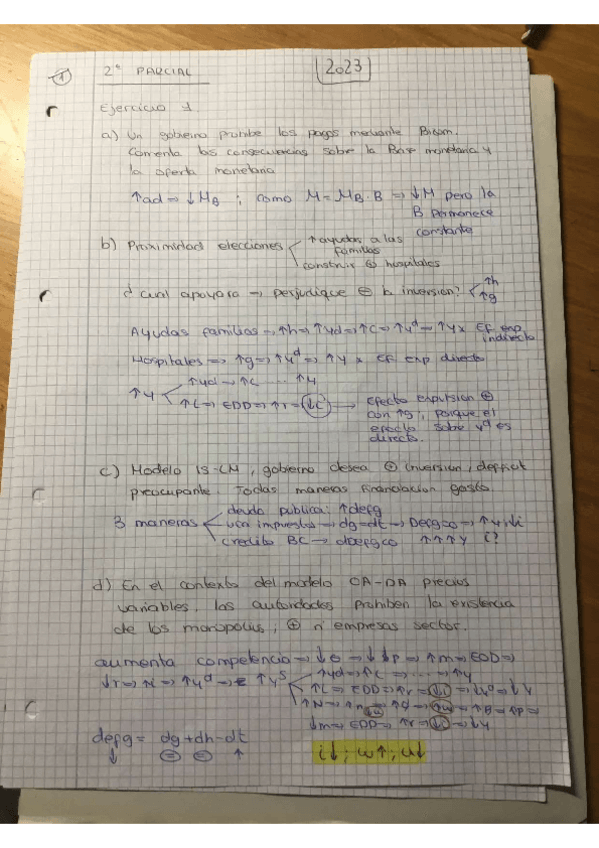 1
2º PARCIAL
2023
Ejercicio 1.
a) Un gobierno prohíbe los pagos mediante Bizum.
Comenta las consecuencias sobre la Base monetaria y
la oferta monetaria
↑ad ⇒ ↓MB ; como M = MB · B ⇒ ↓M pero la
B permanece
constante
b) Proximidad elecciones
↑ ayudas a las
familias
construir ⊕ hospitales
d cual apoyara → perjudique ⊖ la inversion?
↑h
↑g
Ayudas familias → ↑h ⇒ ↑yd ⇒ ↑C ⇒ ↑yd → ↑y x Ef exp
indirecto
Hospitales ⇒ ↑g ⇒ ↑yd ⇒ ↑y x Ef exp directo
↑y
↑yd → ↑C ... ↑y
↑L ⇒ EDD ⇒ ↑r ⇒ ↓i →
Efecto expulsion ⊕
con ↑g, porque el
efecto sobre yd es
directo.
c) Modelo IS-LM, gobierno desea ⊕ inversion, deficit
preocupante. Todas maneras financiacion gasto.
3 maneras
deuda publica: ↑defg
via impuestos → dg=dt →
credito BC → ↑↑↑y
d) En el contexto del modelo OA-DA precios
variables, las autoridades prohiben la existencia
de los monopolis, ⊕ nº empresas sector.
aumenta competencia ⇒ ↓ ⇒ ↓p ⇒ ↑m ⇒ EOD ⇒
↓r ⇒ ↑yd ⇒ ↑ys
↑yd ⇒ ↑C ⇒ ... ⇒ ↑y
↑L ⇒ EDD ⇒ ↑r ⇒ ↓i ⇒ ↓yd ⇒ ↓y
↓m ⇒ EDD ⇒ ↑r ⇒ ↓i ⇒ ↓y
defg = dg + dh - dt
↓ ⊜ ⊜ ↑
i↓ ; w↑ ; u↓